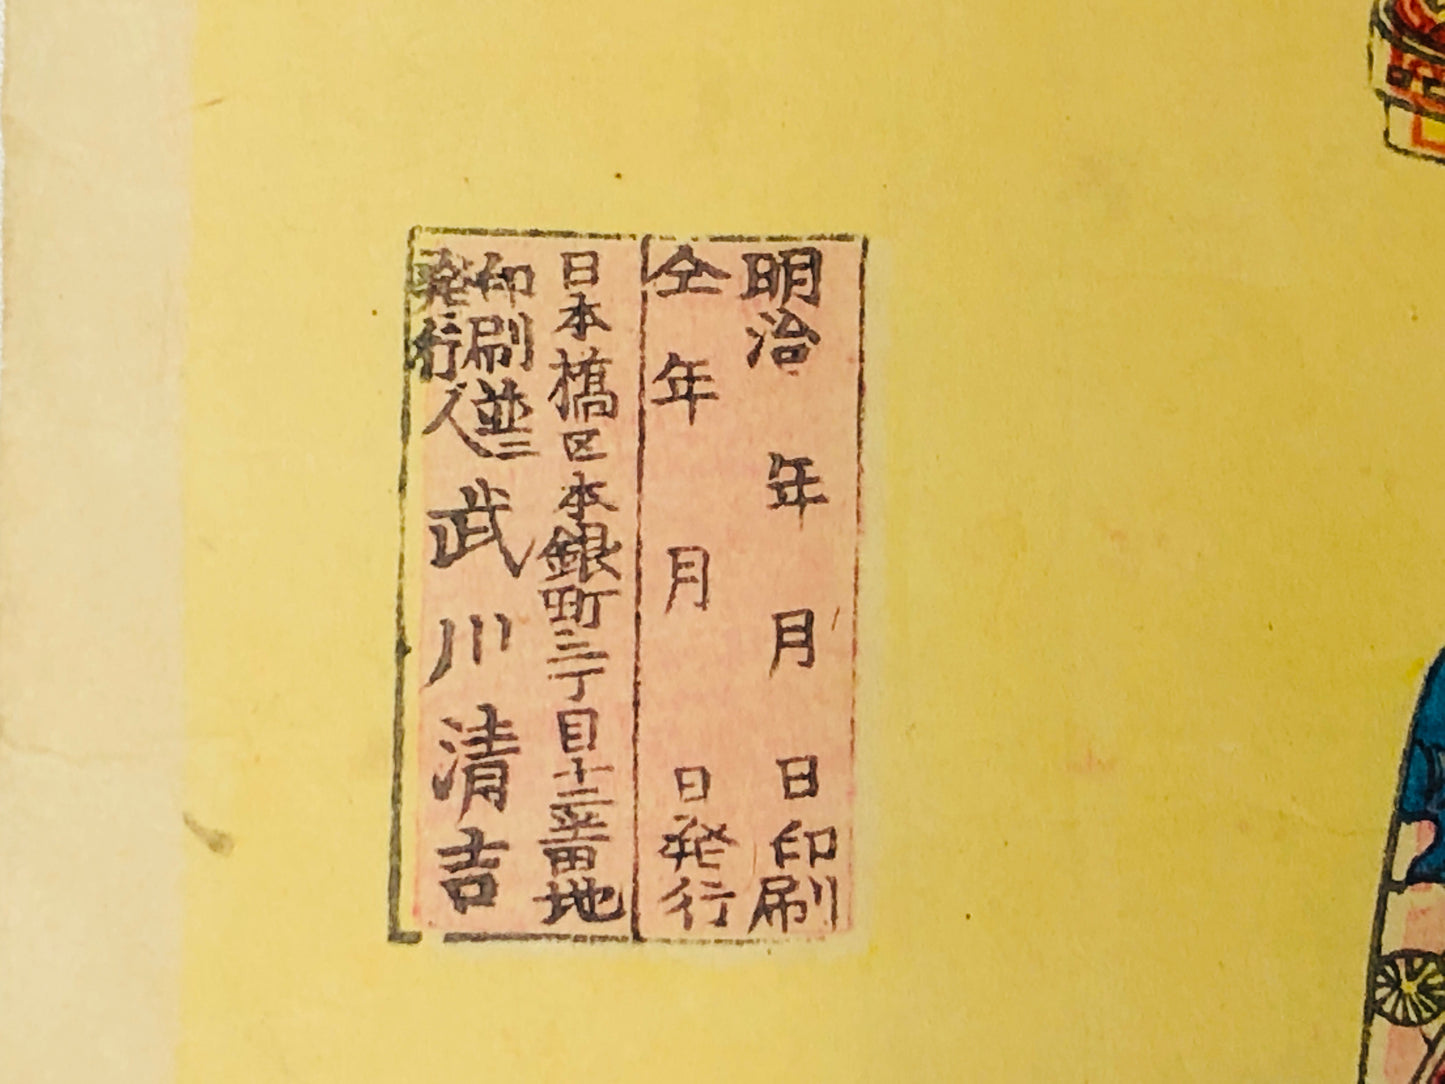 明治 年 月 日印刷
仝 年 月 日発行
日本橋区本銀町二丁目十二番地
印刷並ニ
発行人
武川清吉